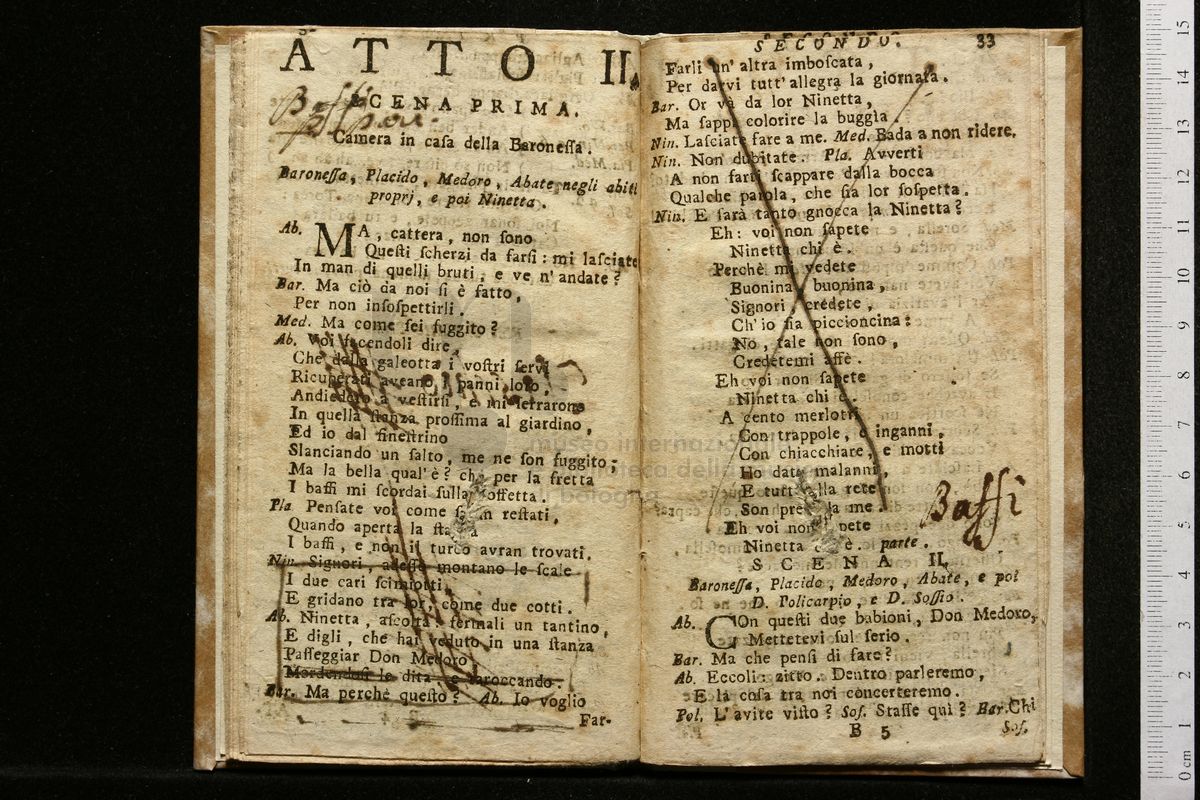 ATTO II.
SCENA PRIMA.
Camera in casa della Baronessa.
Baronessa, Placido, Medoro, Abate negli abiti
proprj, e poi Ninetta.
Ab. MA, cattera, non sono
Questi scherzi da farsi: mi lasciate
In man di quelli bruti, e ve n'andate?
Bar. Ma ciò da noi si è fatto,
Per non insospettirli.
Med. Ma come sei fuggito?
Ab. Voi facendoli dire,
Che dalla galeotta i vostri servi
Ricuperati aveano i panni loro,
Andiedero a vestirsi, e mi serrarono
In quella stanza prossima al giardino,
Ed io dal finestrino
Slanciando un salto, me ne son fuggito;
Ma la bella qual'è? che per la fretta
I baffi mi scordai sulla toffetta.
Pla. Pensate voi come restati,
Quando aperta la
I baffi, e non il turco avran trovati.
Nin. Signori, adesso montano le scale
I due cari scimiotti,
E gridano tra lor, come due cotti.
Ab. Ninetta, ascolta: fermali un tantino,
E digli, che hai veduto in una stanza
Passeggiar Don Medoro
Mordendosi le dita, e taroccando.
Bar. Ma perchè questo? Ab. Io voglio
Far-
SECONDO. 33
Farli un' altra imboscata,
Per darvi tutt' allegra la giornata.
Bar. Or và da lor Ninetta,
Ma sappi colorire la buggia.
Nin. Lasciate fare a me. Med. Bada a non ridere.
Nin. Non dubitate. Pla. Avverti
A non farti scappare dalla bocca
Qualche parola, che sia lor sospetta.
Nin. E sarà tanto gnocca la Ninetta?
Eh: voi non sapete
Ninetta chi è.
Perchè mi vedete
Buonina, buonina,
Signori, credete,
Ch'io sia piccioncina:
No, tale non sono,
Credetemi affè.
Eh voi non sapete
Ninetta chi è.
A cento merlotti
Con trappole, e inganni,
Con chiacchiare, e motti
Ho dato malanni,
E tutti alla rete
Son presi da me.
Eh voi non sapete
Ninetta chi è. parte.
SCENA II.
Baronessa, Placido, Medoro, Abate, e poi
D. Policarpio, e D. Sossio.
Baffi
Ab. COn questi due babioni, Don Medoro,
Mettetevi sul serio.
Bar. Ma che pensi di fare?
Ab. Eccoli: zitto. Dentro parleremo,
E la cosa tra noi concerteremo.
Pol. L'avite visto? Sos. Stasse quì? Bar. Chi
B 5 Sos.